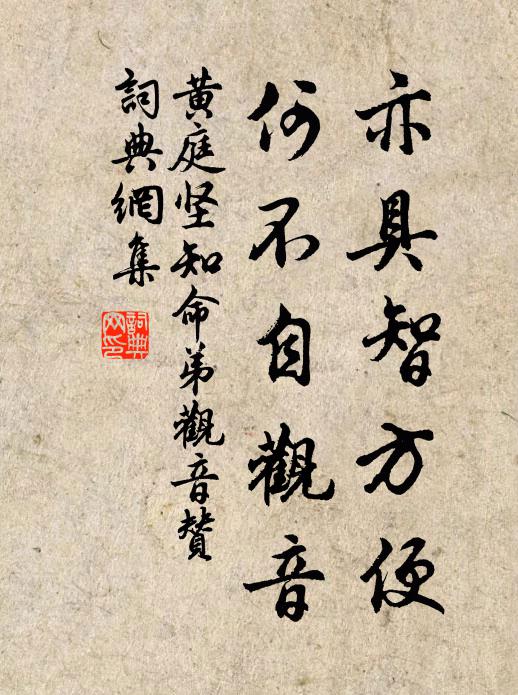 亦具智方便
何不自觀音
黃庭坚知命弟觀音贊
詞典網集
詞典网印